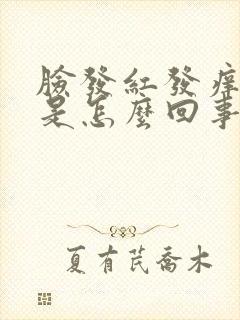 臉發紅發痒
是怎麼回事
夏有芪喬木